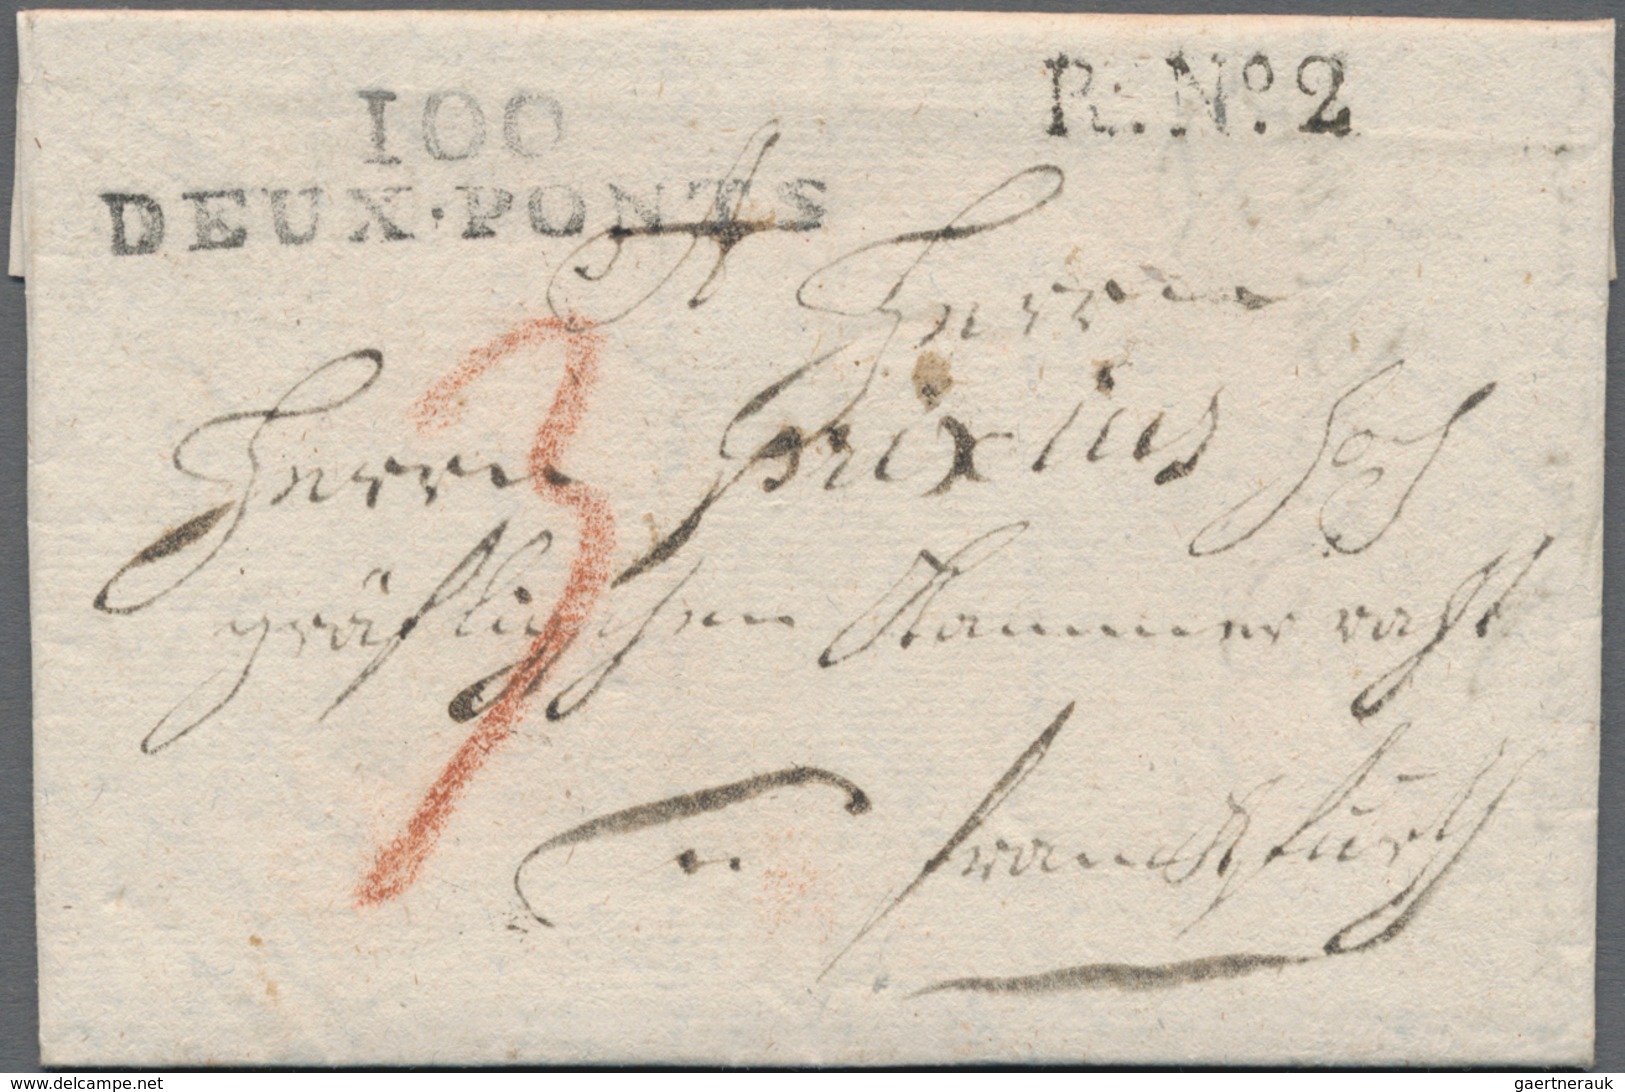 100
DEUX·PONTS
R. No. 2
A Herrn
Herrn Grixius hoch
gräflichen Kammerrath
in
Franckfurth
www.delcampe.net
gaertnerauk